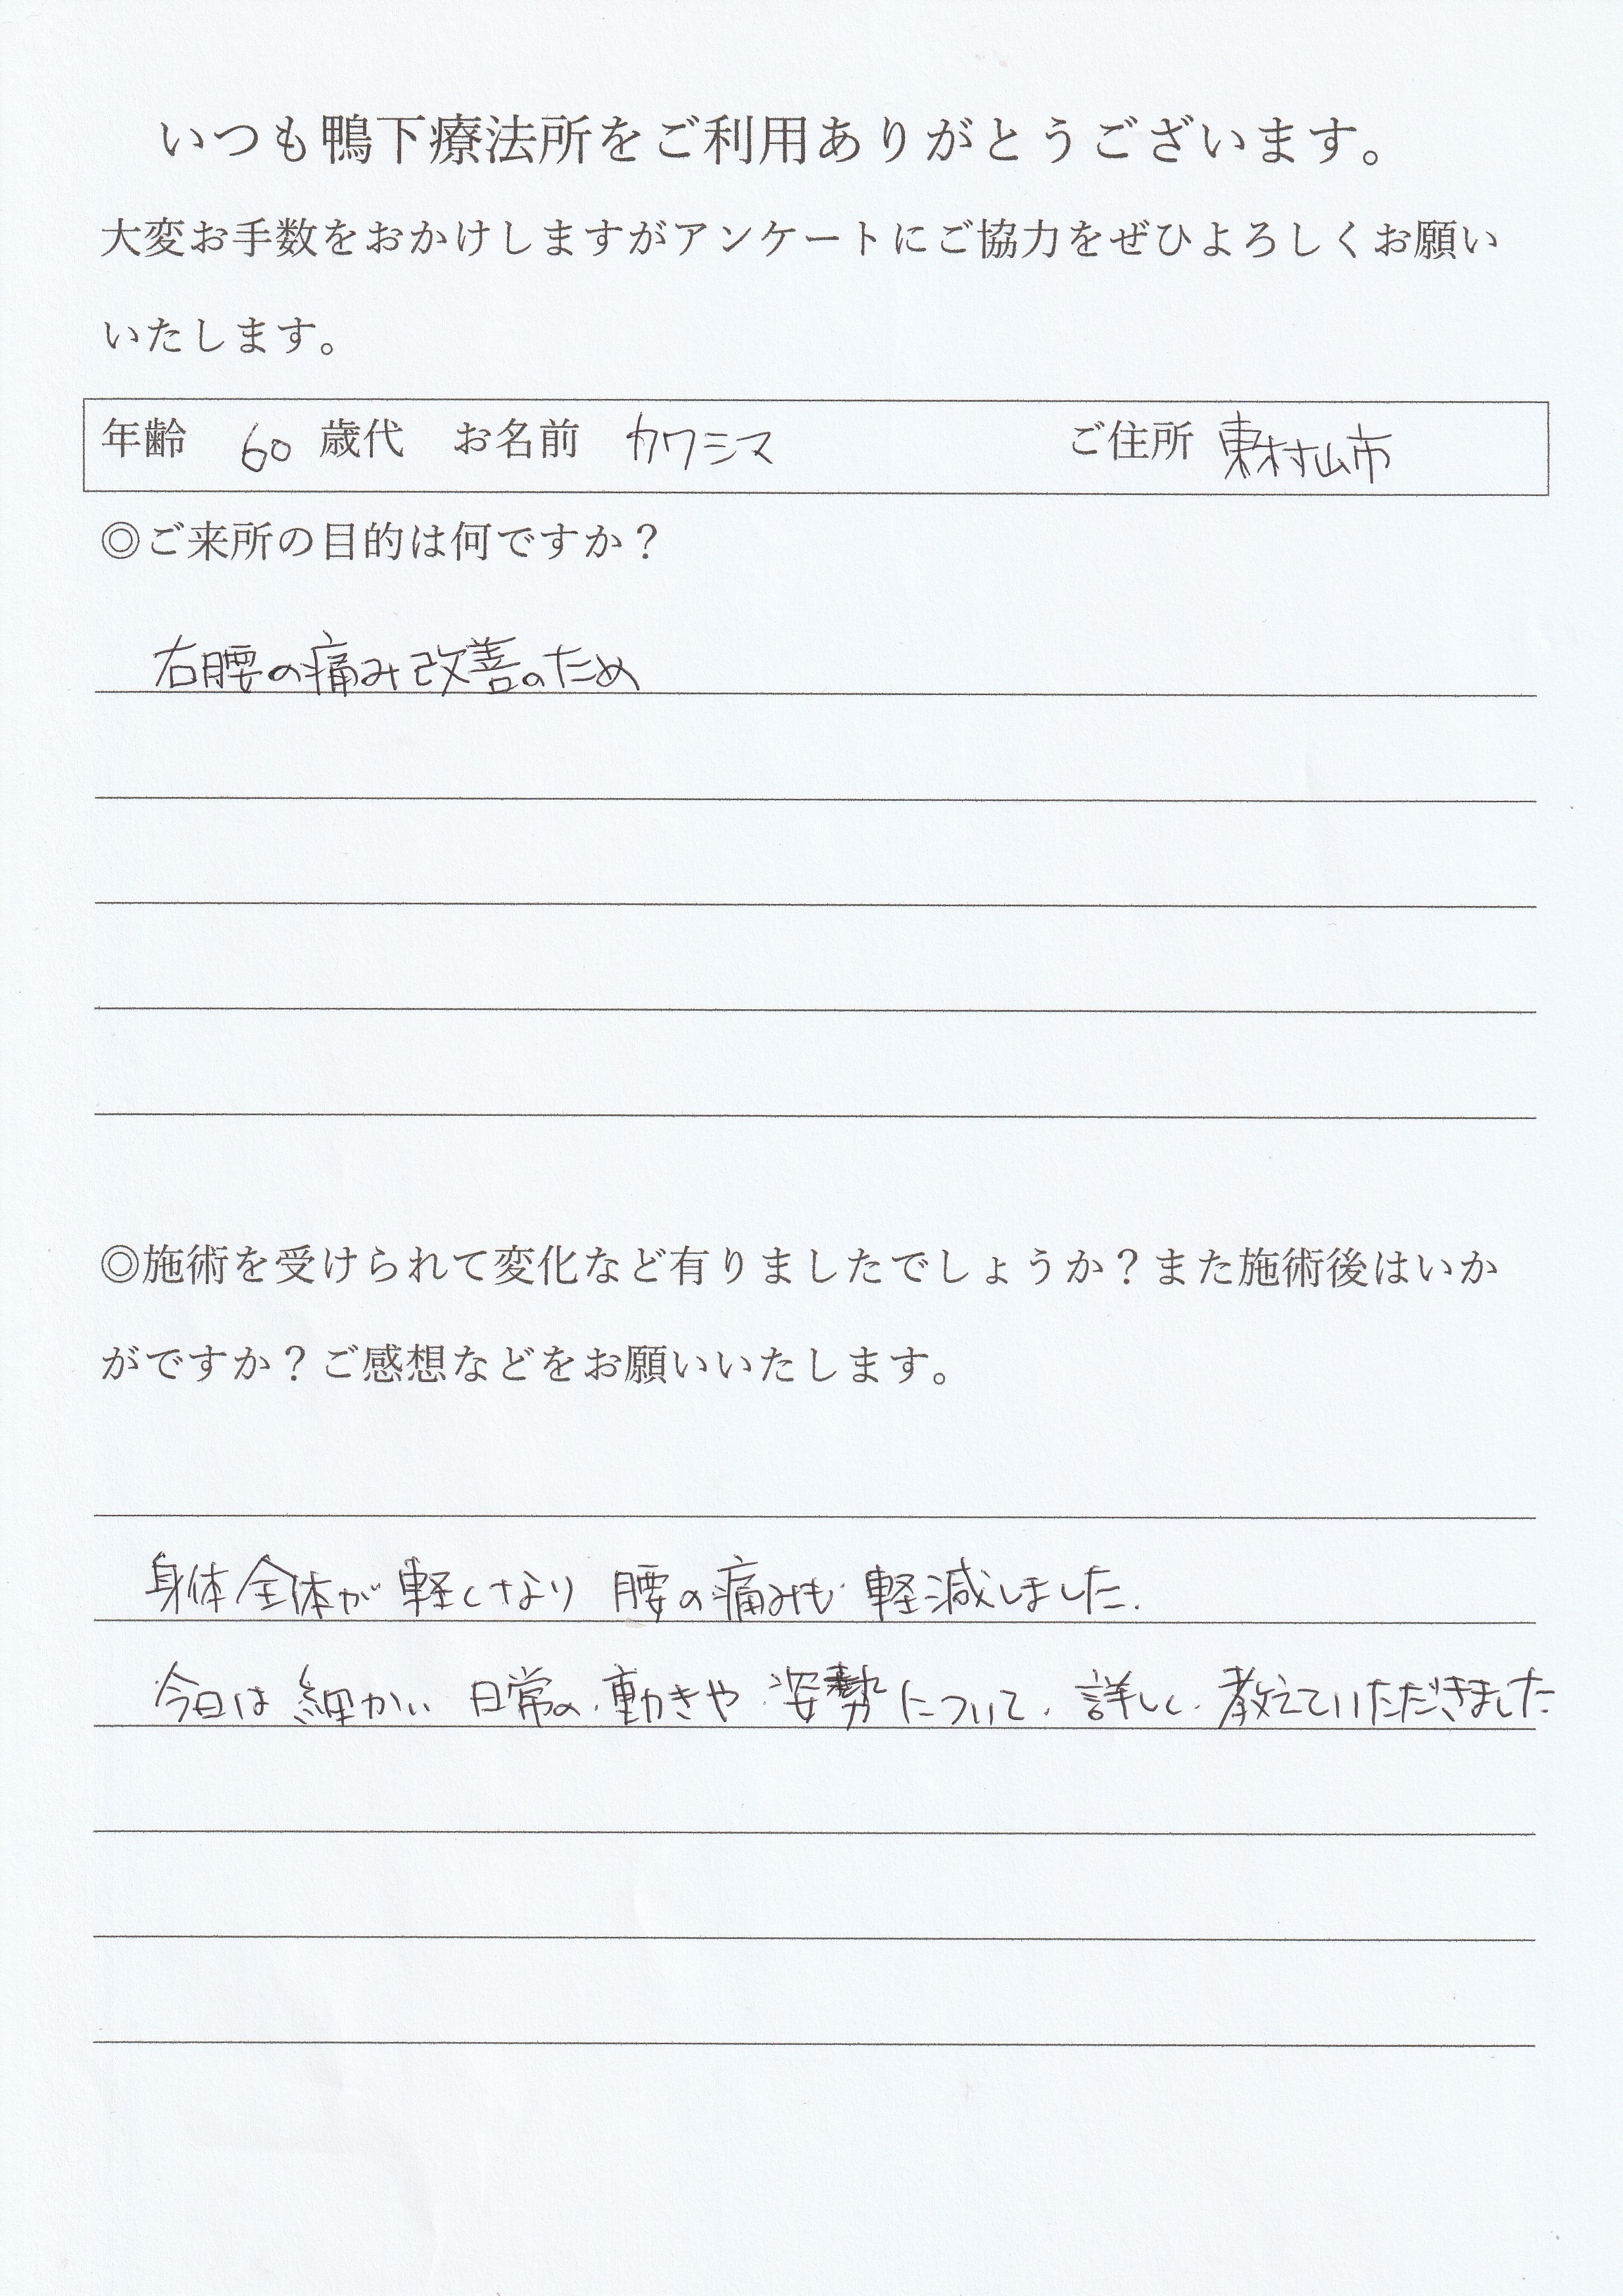 いつも鴨下療法所をご利用ありがとうございます。
大変お手数をおかけしますがアンケートにご協力をぜひよろしくお願い
いたします。
年齢 60 歳代 お名前 カワシマ ご住所 東村山市
◎ご来所の目的は何ですか？
右腰の痛み改善のため
◎施術を受けられて変化など有りましたでしょうか？また施術後はいか
がですか？ご感想などをお願いいたします。
身体全体が軽くなり 腰の痛みも 軽減しました.
今日は 細かい 日常の動きや 姿勢について、詳しく 教えていただきました